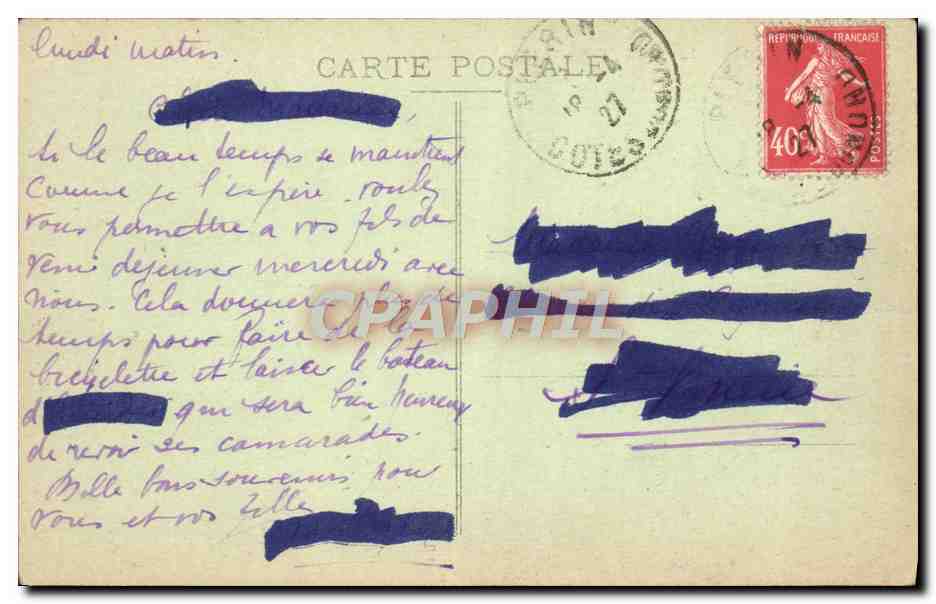 lundi matin
CARTE POSTALE
Si le beau temps se maintient
comme je l'espère voulez
vous permettre a vos fils de
venir déjeuner mercredi avec
nous. Cela donnera plus de
temps pour faire de la
bicyclette et laisser le bateau
d' qui sera bien heureux
de revoir ses camarades.
Mille bons souvenirs pour
vous et vos filles
CPAPHIL
COTES
18
27
REPUBLIQUE FRANCAISE
40
POSTES